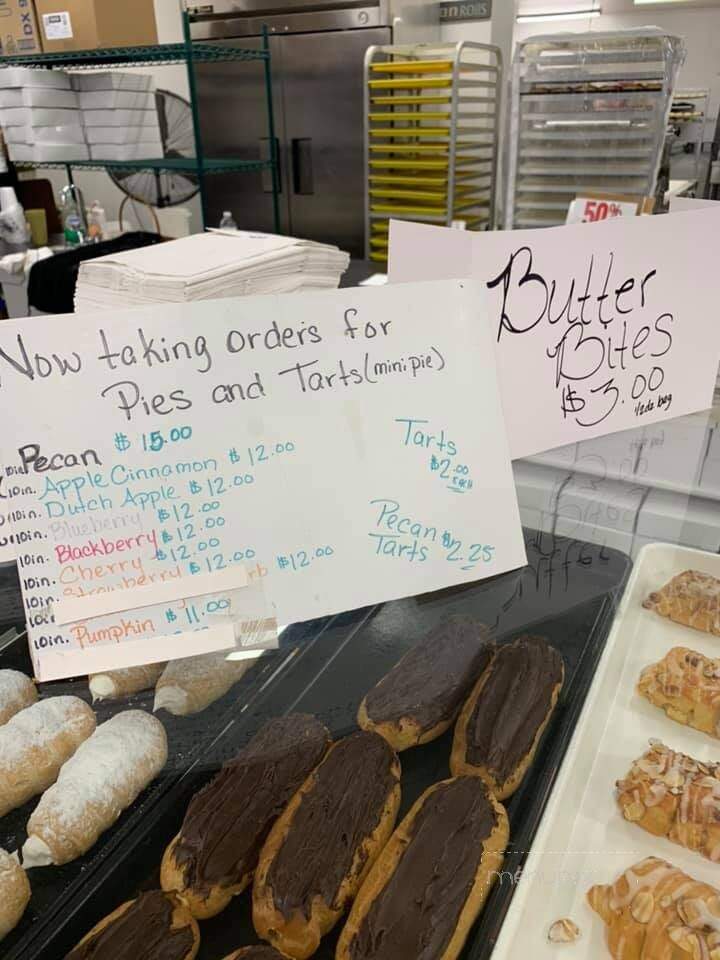 ROLLS
50%
Now taking orders for
Pies and Tarts (mini pie)
10in. Pecan $15.00
10in. Apple Cinnamon $12.00
10in. Dutch Apple $12.00
10in. Blueberry $12.00
10in. Blackberry $12.00
10in. Cherry $12.00
10in. Strawberry $12.00
$12.00
10in. Pumpkin $11.00
Tarts
$2.00
each
Pecan
Tarts $2.25
Butter
Bites
$3.00
1/2dz bag